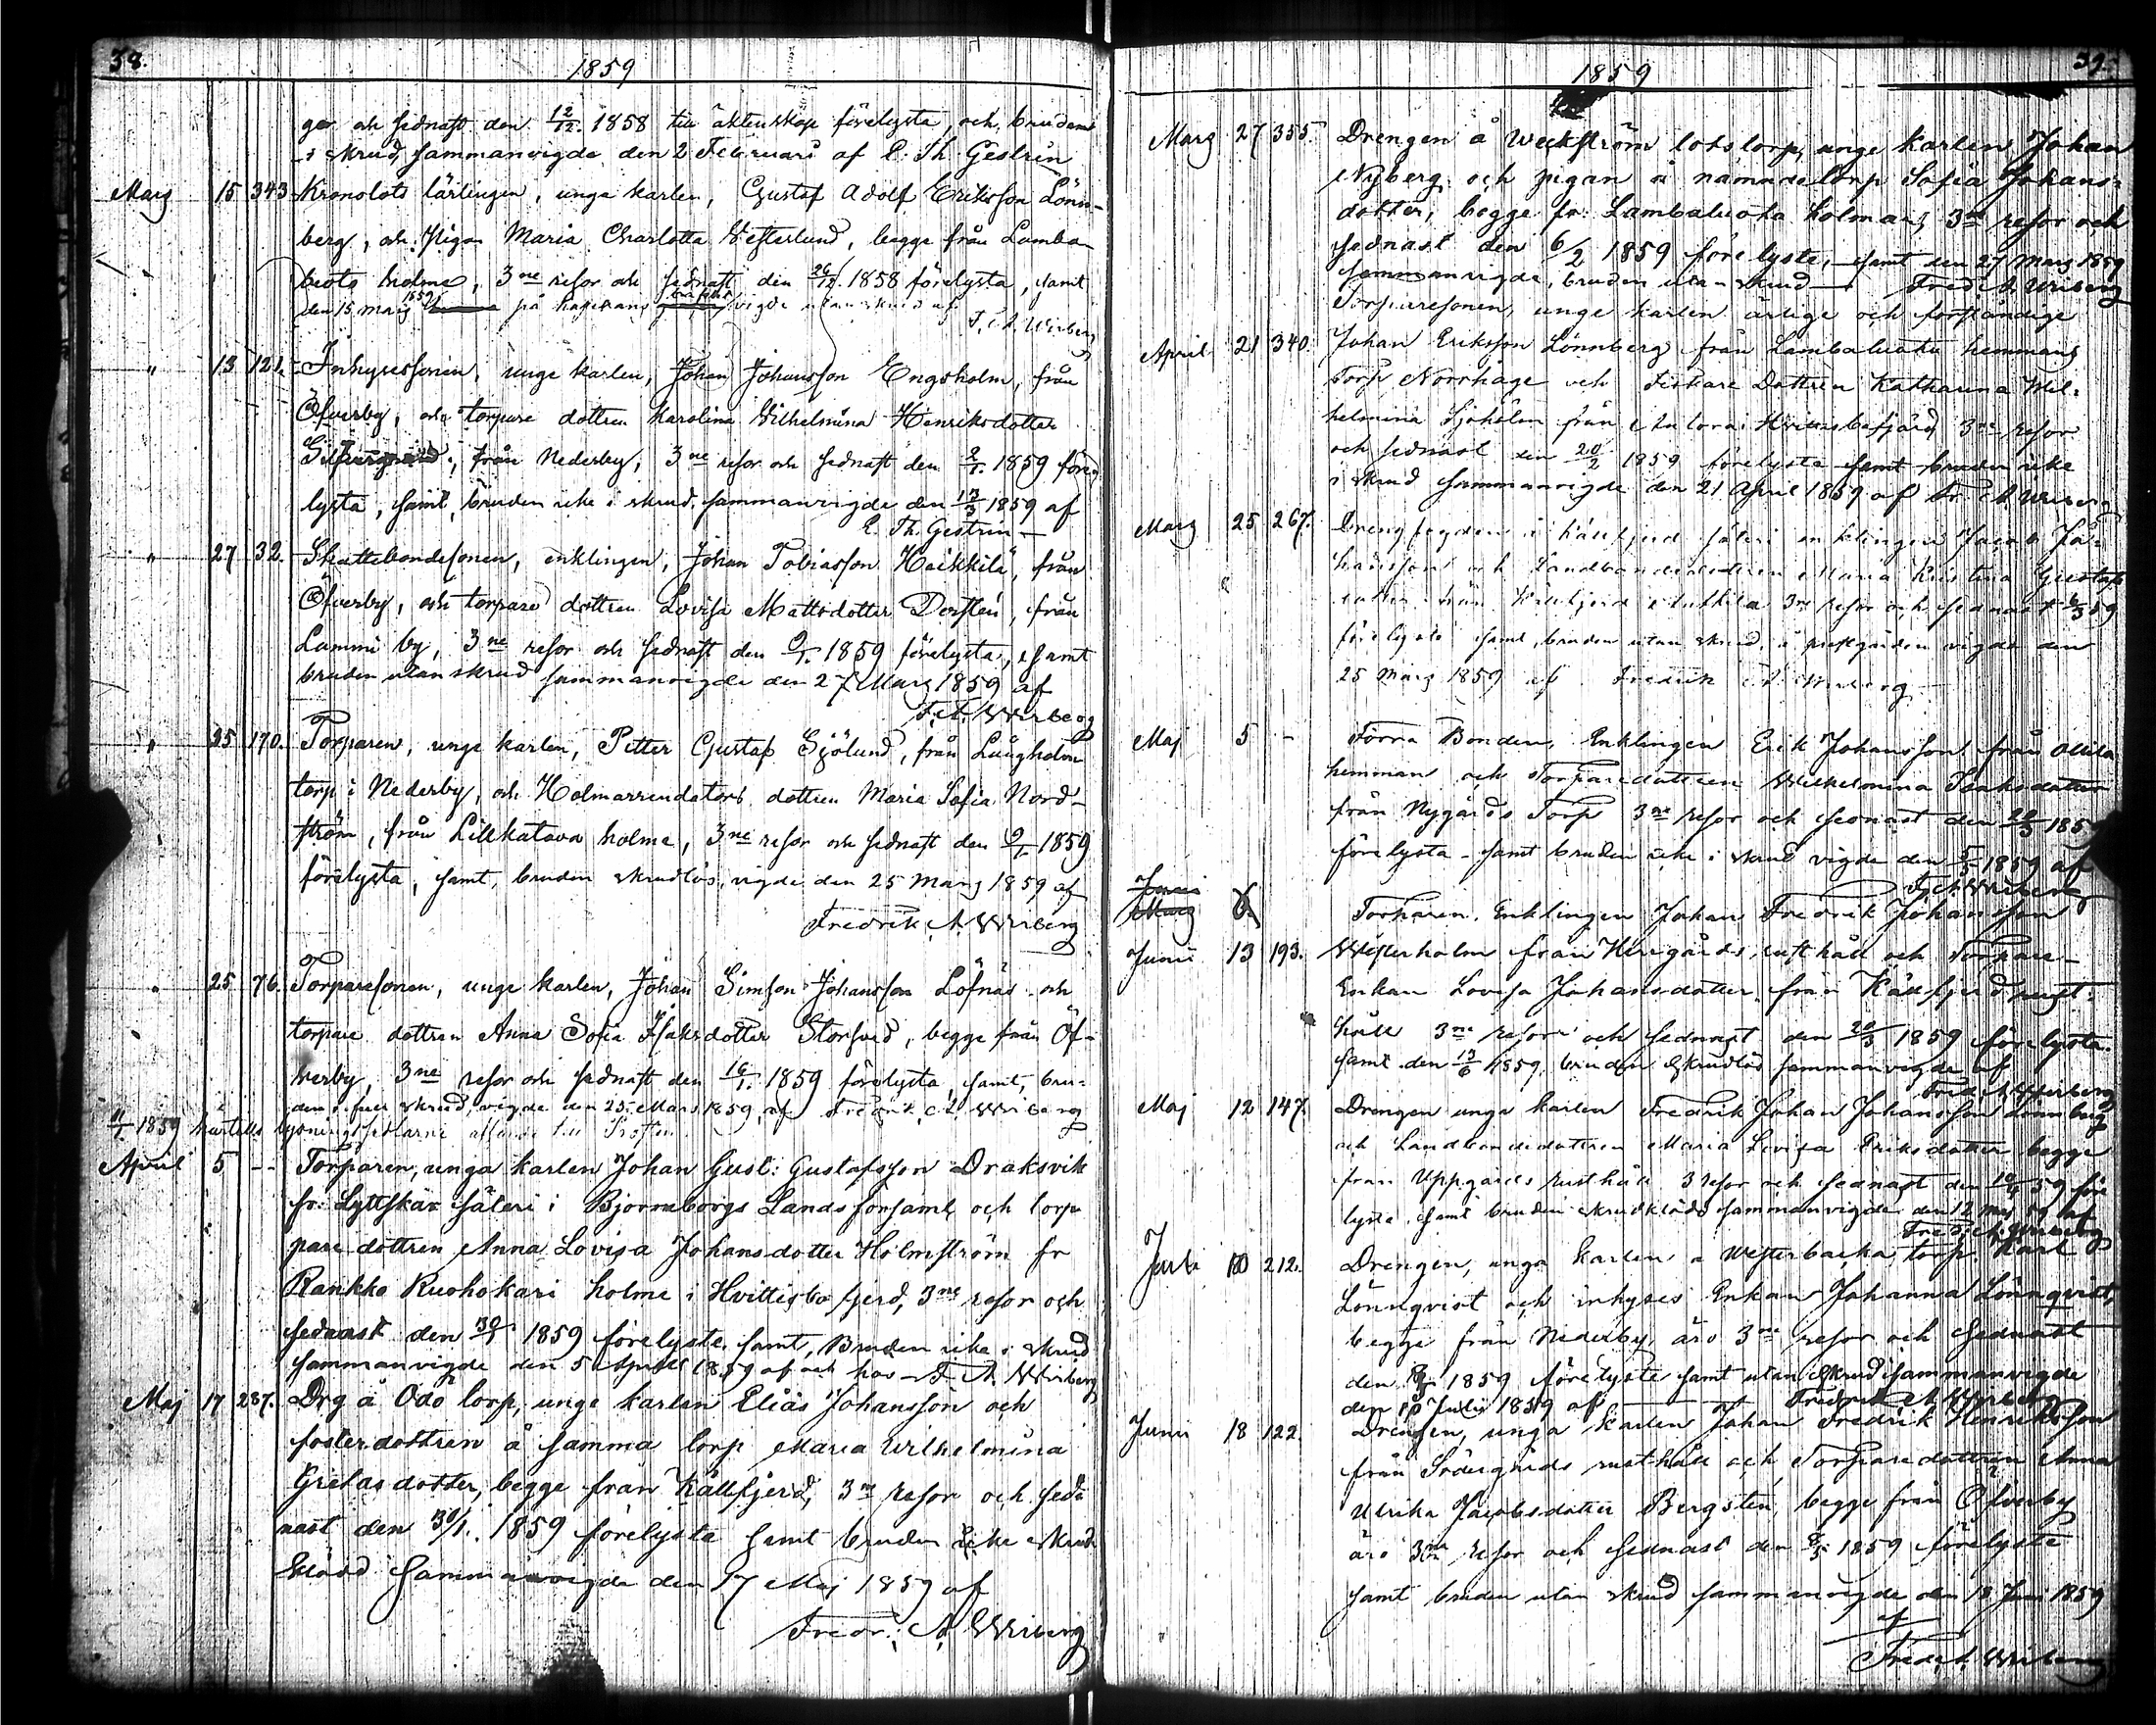 38.
1859
ger och sednast den 12/12. 1858 till äktenskap förelysta, och, bruden
i skrud, sammanvigde den 2 Februari af E. Th. Gestrin
Marz 15 343 Kronolots lärlingen, unga karlen, Gustaf Adolf Eriksson Lönn-
berg, och Pigan Maria Charlotta Vesterlund, begge från Lamba-
holme, 3ne resor och sednast den 26/12 1858 förelysta, samt
den 15 Marz 1859 på vigde utan skrud af
F. A. Wriberg
" 13 121. Inhysessonen, unge karlen, Johan Johansson Engsholm, från
Öfverby, och torpare dottren Karolina Vilhelmina Henriksdotter
från Nederby, 3ne resor och sednast den 2/1. 1859 före-
lysta, samt, bruden icke i skrud, sammanvigde den 13/3 1859 af
E. Th. Gestrin
" 27 32. Skattebondesonen, enklingen, Johan Tobiasson Heikkilä, från
Öfverby, och torpare dottren Lovisa Mattsdotter Dorsten, från
Lammi by, 3ne resor och sednast den 9/1. 1859 förelysta, samt
bruden utan skrud sammanvigde den 27 Marz 1859 af
F. A. Wriberg
" 25 170. Torparen, unge karlen, Petter Gustaf Sjölund, från Långholm
torp i Nederby, och Holmarrendators dottren Maria Sofia Nord-
ström, från Lillkatava holme, 3ne resor och sednast den 9/1. 1859
förelysta, samt, bruden skrudlös, vigde den 25 Marz 1859 af
Fredrik A. Wriberg
" 25 76. Torparesonen, unge karlen, Johan Simson Johansson Löfnäs och
torpare dottren Anna Sofia Isaksdotter Storsved, begge från Öf-
verby, 3ne resor och sednast den 16/1. 1859 förelysta, samt, bru-
den i full skrud, vigde den 25 Mars 1859 af Fredrik A. Wriberg
1859 lysningssedlarne till Prosten
April 5 -- Torparen, unga karlen Johan Gust: Gustafsson Draksvik
fr. Lyttskär säteri i Bjorneborgs Landsförsaml. och torp
pare dottren Anna Lovisa Johansdotter Holmström fr
Rankko Ruohokari holme i Hvittisbo fjerd, 3ne resor och
sednast den 30/1 1859 förelyste, samt, Bruden icke i skrud
sammanvigde den 5 April 1859 af och hos F. A. Wriberg
Maj 17 287. Drg å Odö torp, unge karlen Elias Johansson och
fosterdottren å samma torp Maria Wilhelmina
Gretasdotter, begge från Källfjerd, 3ne resor och sed-
nast den 30/1. 1859 förelysta samt bruden icke skrud
klädd Sammanvigde den 17 Maj 1859 af
Fredr. A. Wriberg
39.
1859
Marz 27 355. Drengen å Weckström lotstorp, unge karlen Johan
Nyberg, och pigan å nämnde torp Sofia Johans-
dotter, begge fr. Lambaluoto holmar, 3ne resor och
sednast den 6/2 1859 förelyste, samt den 27 Marz 1859
sammanvigde, bruden utan skrud Fred. A. Wriberg
April 21 340. Torparesonen, unge karlen ärlige och förståndige
Johan Eriksson Lönnberg från Lambaluoto hemmans
torp Norrhage och Fiskare Dottren Katharina Wil-
helmina Sjöholm från Hvittisbofjärd, 3ne resor
och sednast den 20/2 1859 förelysta samt bruden icke
i skrud sammanvigde den 21 April 1859 af Fr. A. Wriberg
Marz 25 267. i Källfjerd säteri enklingen Jacob Jo-
hansson och Landbondedottren Maria Kristina Gustafs
dotter från 3ne resor och sednast 6/3 59
förelyste samt, bruden utan skrud, i prestgården vigde den
25 Marz 1859 af Fredrik A. Wriberg
Maj 5 - Förra Bonden, Enklingen Erik Johansson från Ollila
hemman och Torparedottren Wilhelmina Isaksdotter
från Nygårds Torp 3ne resor och sednast den 20/3 1859
förelysta - samt bruden icke i skrud vigde den 5/5 1859 af
F. A. Wriberg
Junii 13 193. Torparen, Enklingen Johan Fredrik Johansson
Westerholm från Herrgårds rusthåll och Torpare-
Enkan Lovisa Johansdotter från Källfjerd rust-
håll 3ne resor och sednast den 20/3 1859 förelysta.
samt den 13/6 1859, bruden skrudlös sammanvigde af
Fred. A. Wriberg
Maj 12 147. Drengen unge karlen Fredrik Johan Johansson Lönnberg
och Landbondedottren Maria Lovisa Eriksdotter begge
från Uppgårds rusthåll 3 resor och sednast den 10/4 59 före
lysta, samt bruden skrudklädd sammanvigde den 12 Maj 59 af
Fred. A. Wriberg
Juli 10 212. Drengen, unga karlen å Westerbacka torp, Karl
Lönnqvist och inhyses Enkan Johanna Lönnqvist,
begge från Nederby äro 3ne resor och sednast
den 1859 förelyste samt utan skrud sammanvigde
den 10 Julii 1859 af Fredrik A. Wriberg
Junii 18 122. Drengen, unga karlen Johan Fredrik Henriksson
från Södergårds rusthåll och Torparedottren Anna
Ulrika Jacobsdotter Bergsten, begge från Öfverby
äro 3ne resor och sednast den 8/5 1859 förelyste
samt bruden utan skrud sammanvigde den 18 Juni 1859
af
Fred. A. Wriberg